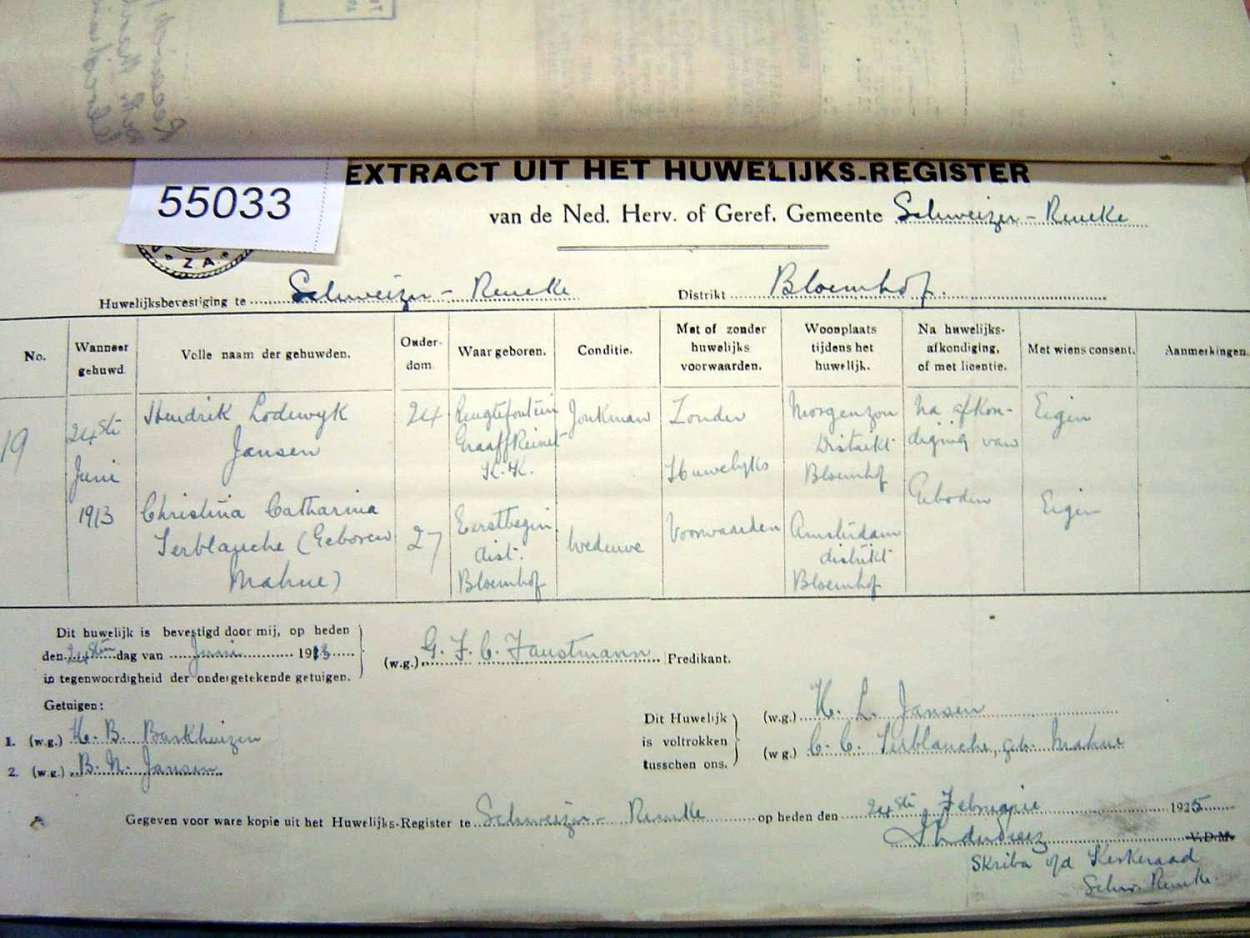 55033
Z.A.
EXTRACT UIT HET HUWELIJKS-REGISTER
van de Ned. Herv. of Geref. Gemeente Schweizer-Reneke
Huwelijksbevestiging te Schweizer-Reneke Distrikt Bloemhof.
No. Wanneer gehuwd. Volle naam der gehuwden. Ouderdom. Waar geboren. Conditie. Met of zonder huwelijks voorwaarden. Woonplaats tijdens het huwelijk. Na huwelijks-afkondiging, of met licentie. Met wiens consent. Aanmerkingen.
19 24ste Juni 1913
Hendrik Lodewyk Jansen 24 Graaff Reinet K.K. Jonkman Zonder Huwelyks Voorwaarden Morgenzon Distrikt Bloemhof Na afkondiging van Geboden Eigen
Christina Catharina Terblanche (Geboren Mahne) 27 Eerstbegin dist. Bloemhof Weduwe Amsterdam distrikt Bloemhof Eigen
Dit huwelijk is bevestigd door mij, op heden
den 24sten dag van Juni 1913
in tegenwoordigheid der ondergetekende getuigen.
(w.g.) G. F. C. Faustmann Predikant.
Getuigen:
1. (w.g.) H. B. Barkhuizen
2. (w.g.) B. N. Jansen
Dit Huwelijk
is voltrokken
tusschen ons.
(w.g.) H. L. Jansen
(w g.) C. C. Terblanche, geb. Mahne
Gegeven voor ware kopie uit het Huwelijks-Register te Schweizer-Reneke op heden den 24ste Februarie 1925
V.D.M.
Skriba o/d Kerkeraad
Schw. Reneke.